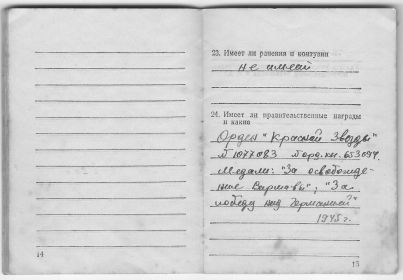 23. Имеет ли ранения и контузии
не имел
24. Имеет ли правительственные награды
и какие
Орден "Красной Звезды"
№1077083 № орд. кн. 653094.
Медали: "За освобожде-
ние Варшавы"; "За
победу над Германией"
1945 г.
14
15